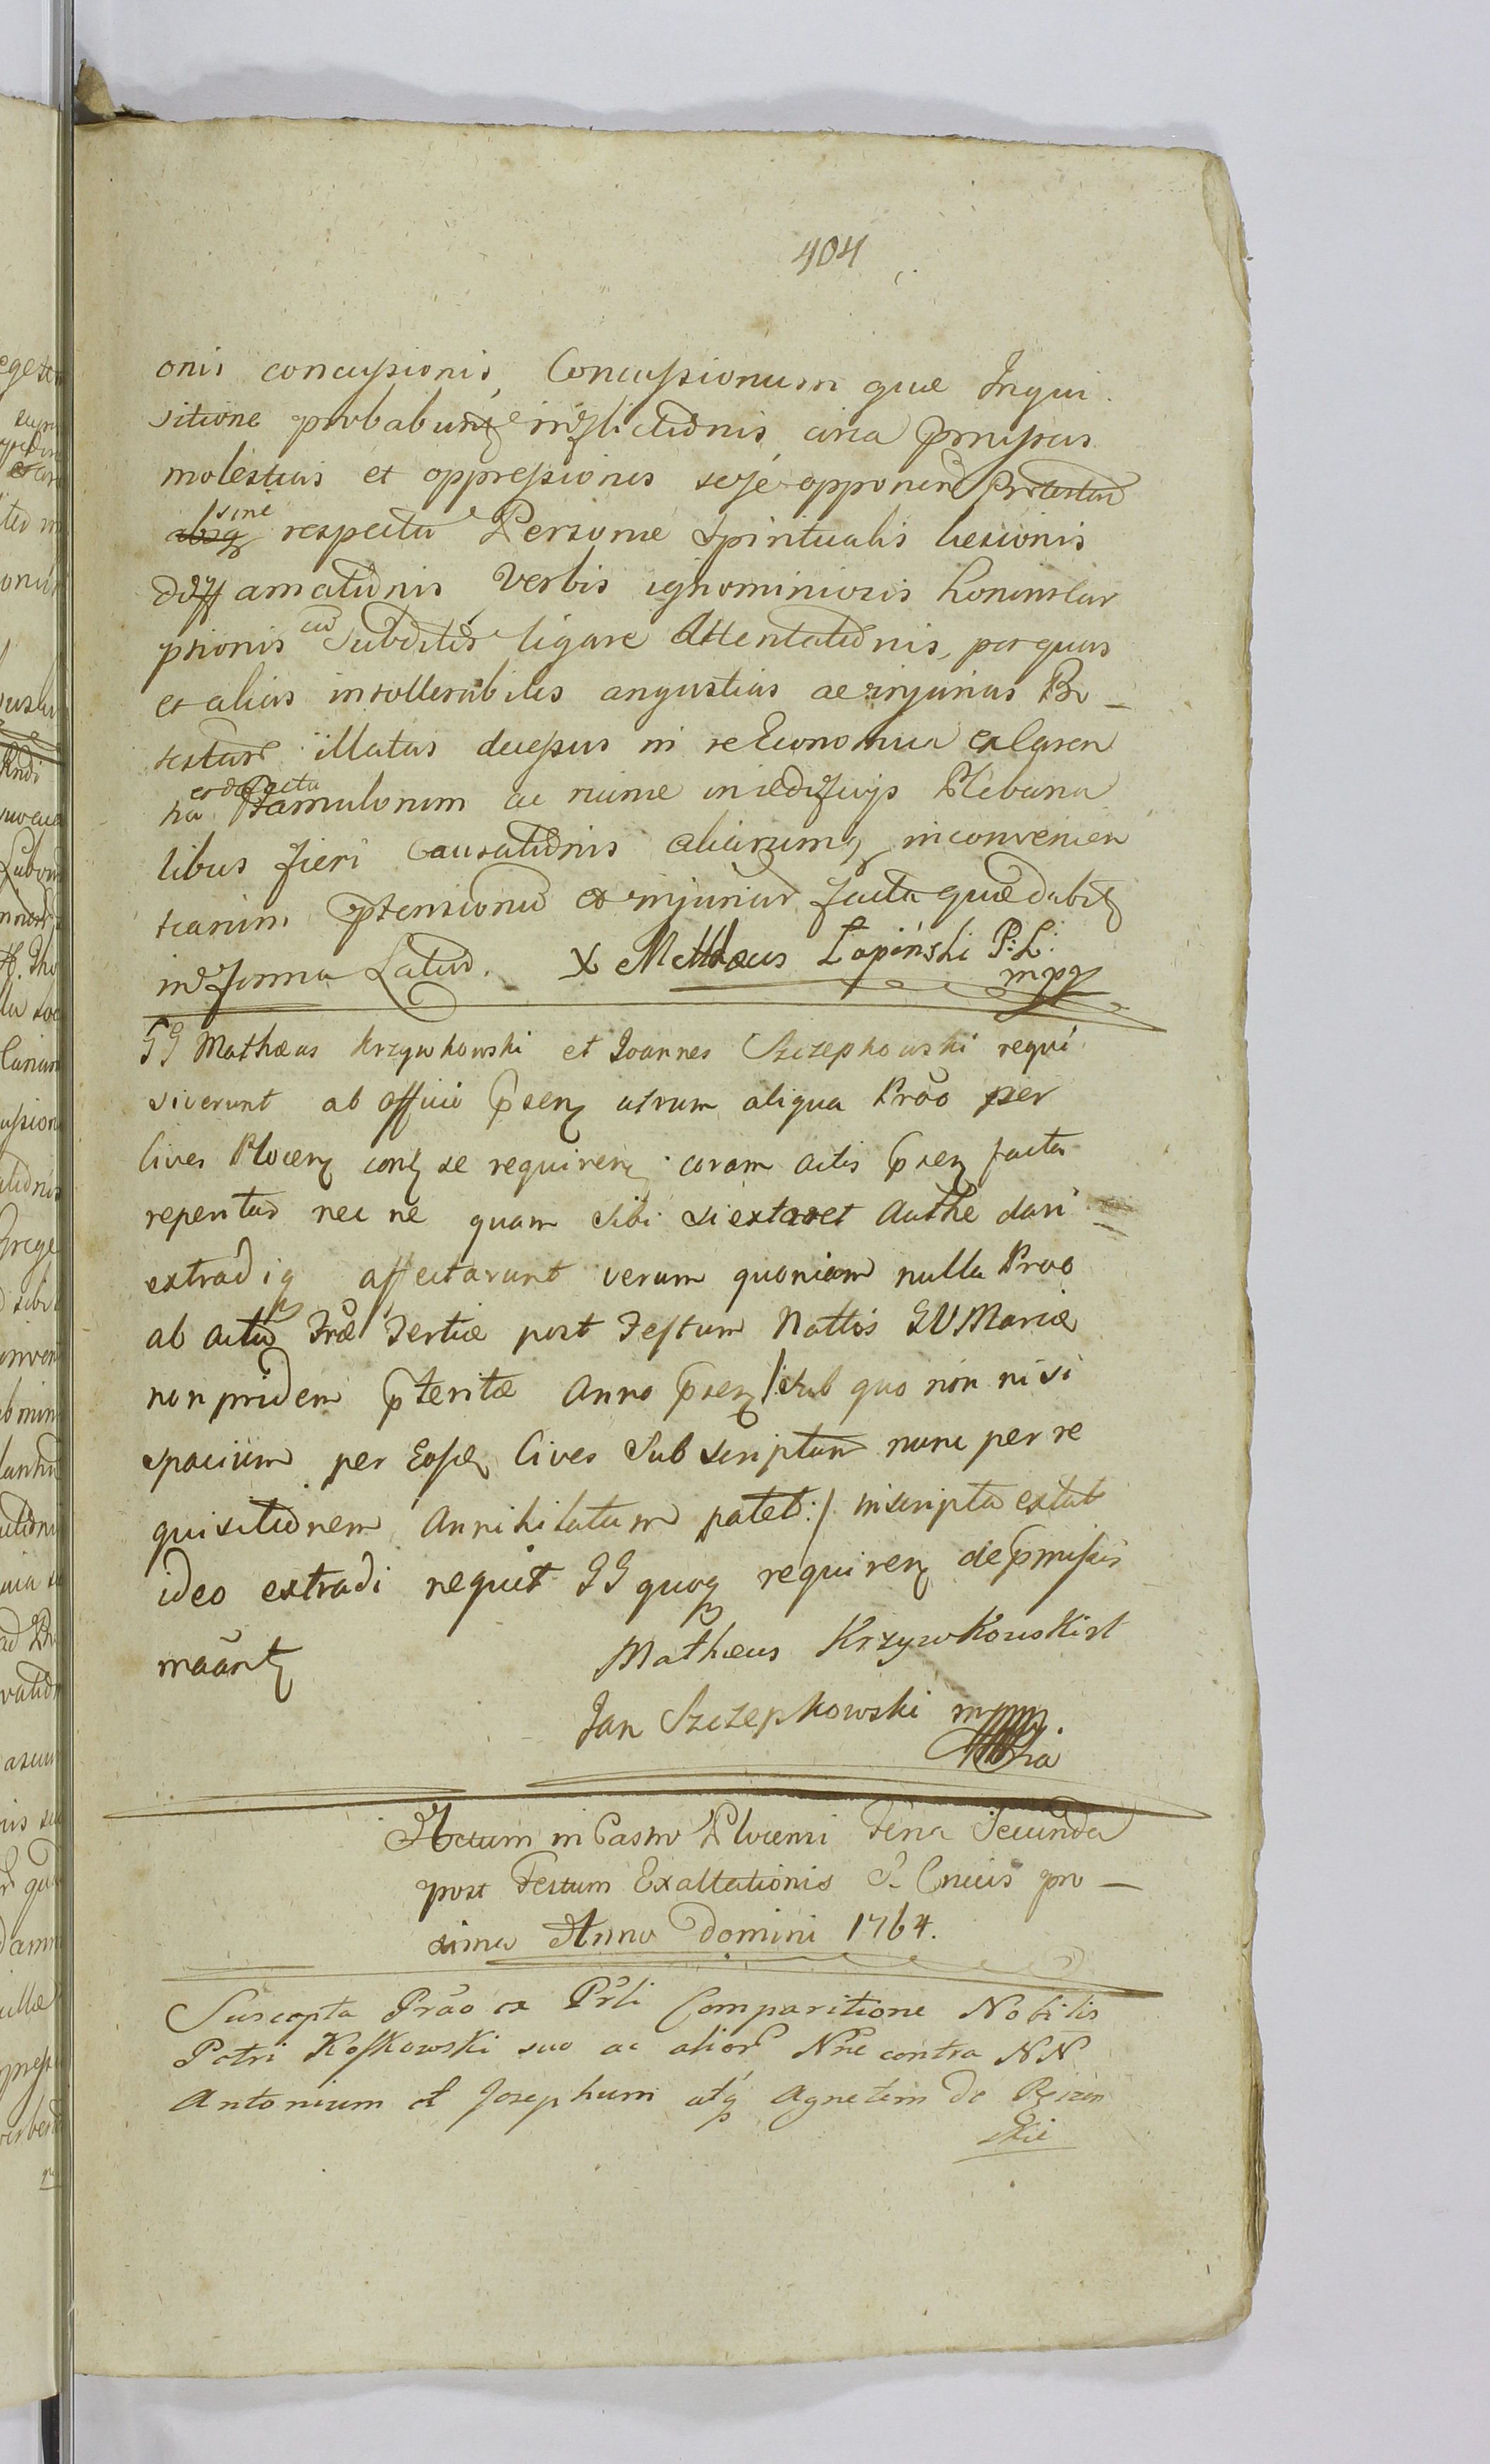 404
onis concussionis, Concussionum quæ Inqui
sitione probabuntq inflictionis, circa pmissas
molestias et oppressiones sese opponend
sine respectu Personæ Spiritualis læsionis
diffamationis Verbis ignominiosis
ptionis cu Subditis ligare Attentationis, per quas
et alias intollerabiles angustias ac injurias Pro
testan illatas decessus in re Economica
et defectu Famulorum ac ruinæ in ædificijs Plebana
libus fieri Causationis aliarumq inconvenien
tiarum ptensionu et injuriar facta quæ dabitq
in forma Latiori. X Matthæus Łapiński P: L:
mpp
GG Mathæus Krzywkowski et Joannes Szczepkowski requi
siverunt ab officio psenq utrum aliqua Prão per
Cives Plocenq conq se requirenq coram actis psenq facta
reperitur nec ne quam sibi si extaret Authe dari
extradiq affectarunt verum quoniam nulla Prão
ab actu Fræ Tertiæ post Festum Nattis BVMariæ
non pridem pteritæ Anno psenq /: sub quo non nisi
spacium per Eosdq Cives Subscriptum nunc per re
quisitionem Annihilatum patet :/ inscripta extat
ideo extradi nequit GG quoq requirenq de pmissis
mãantq Mathæus Krzywkowski st
Jan Szczepkowski mppr
Actum in Castro Plocensi Feria Secunda
post Festum Exaltationis S. Crucis pro
xima Anno Domini 1764.
Suscepta Prão ex Prli Comparitione Nobilis
Petri Kosskowski suo ac alior Nne contra NN
Antonium et Josephum atq Agnetem de
skie